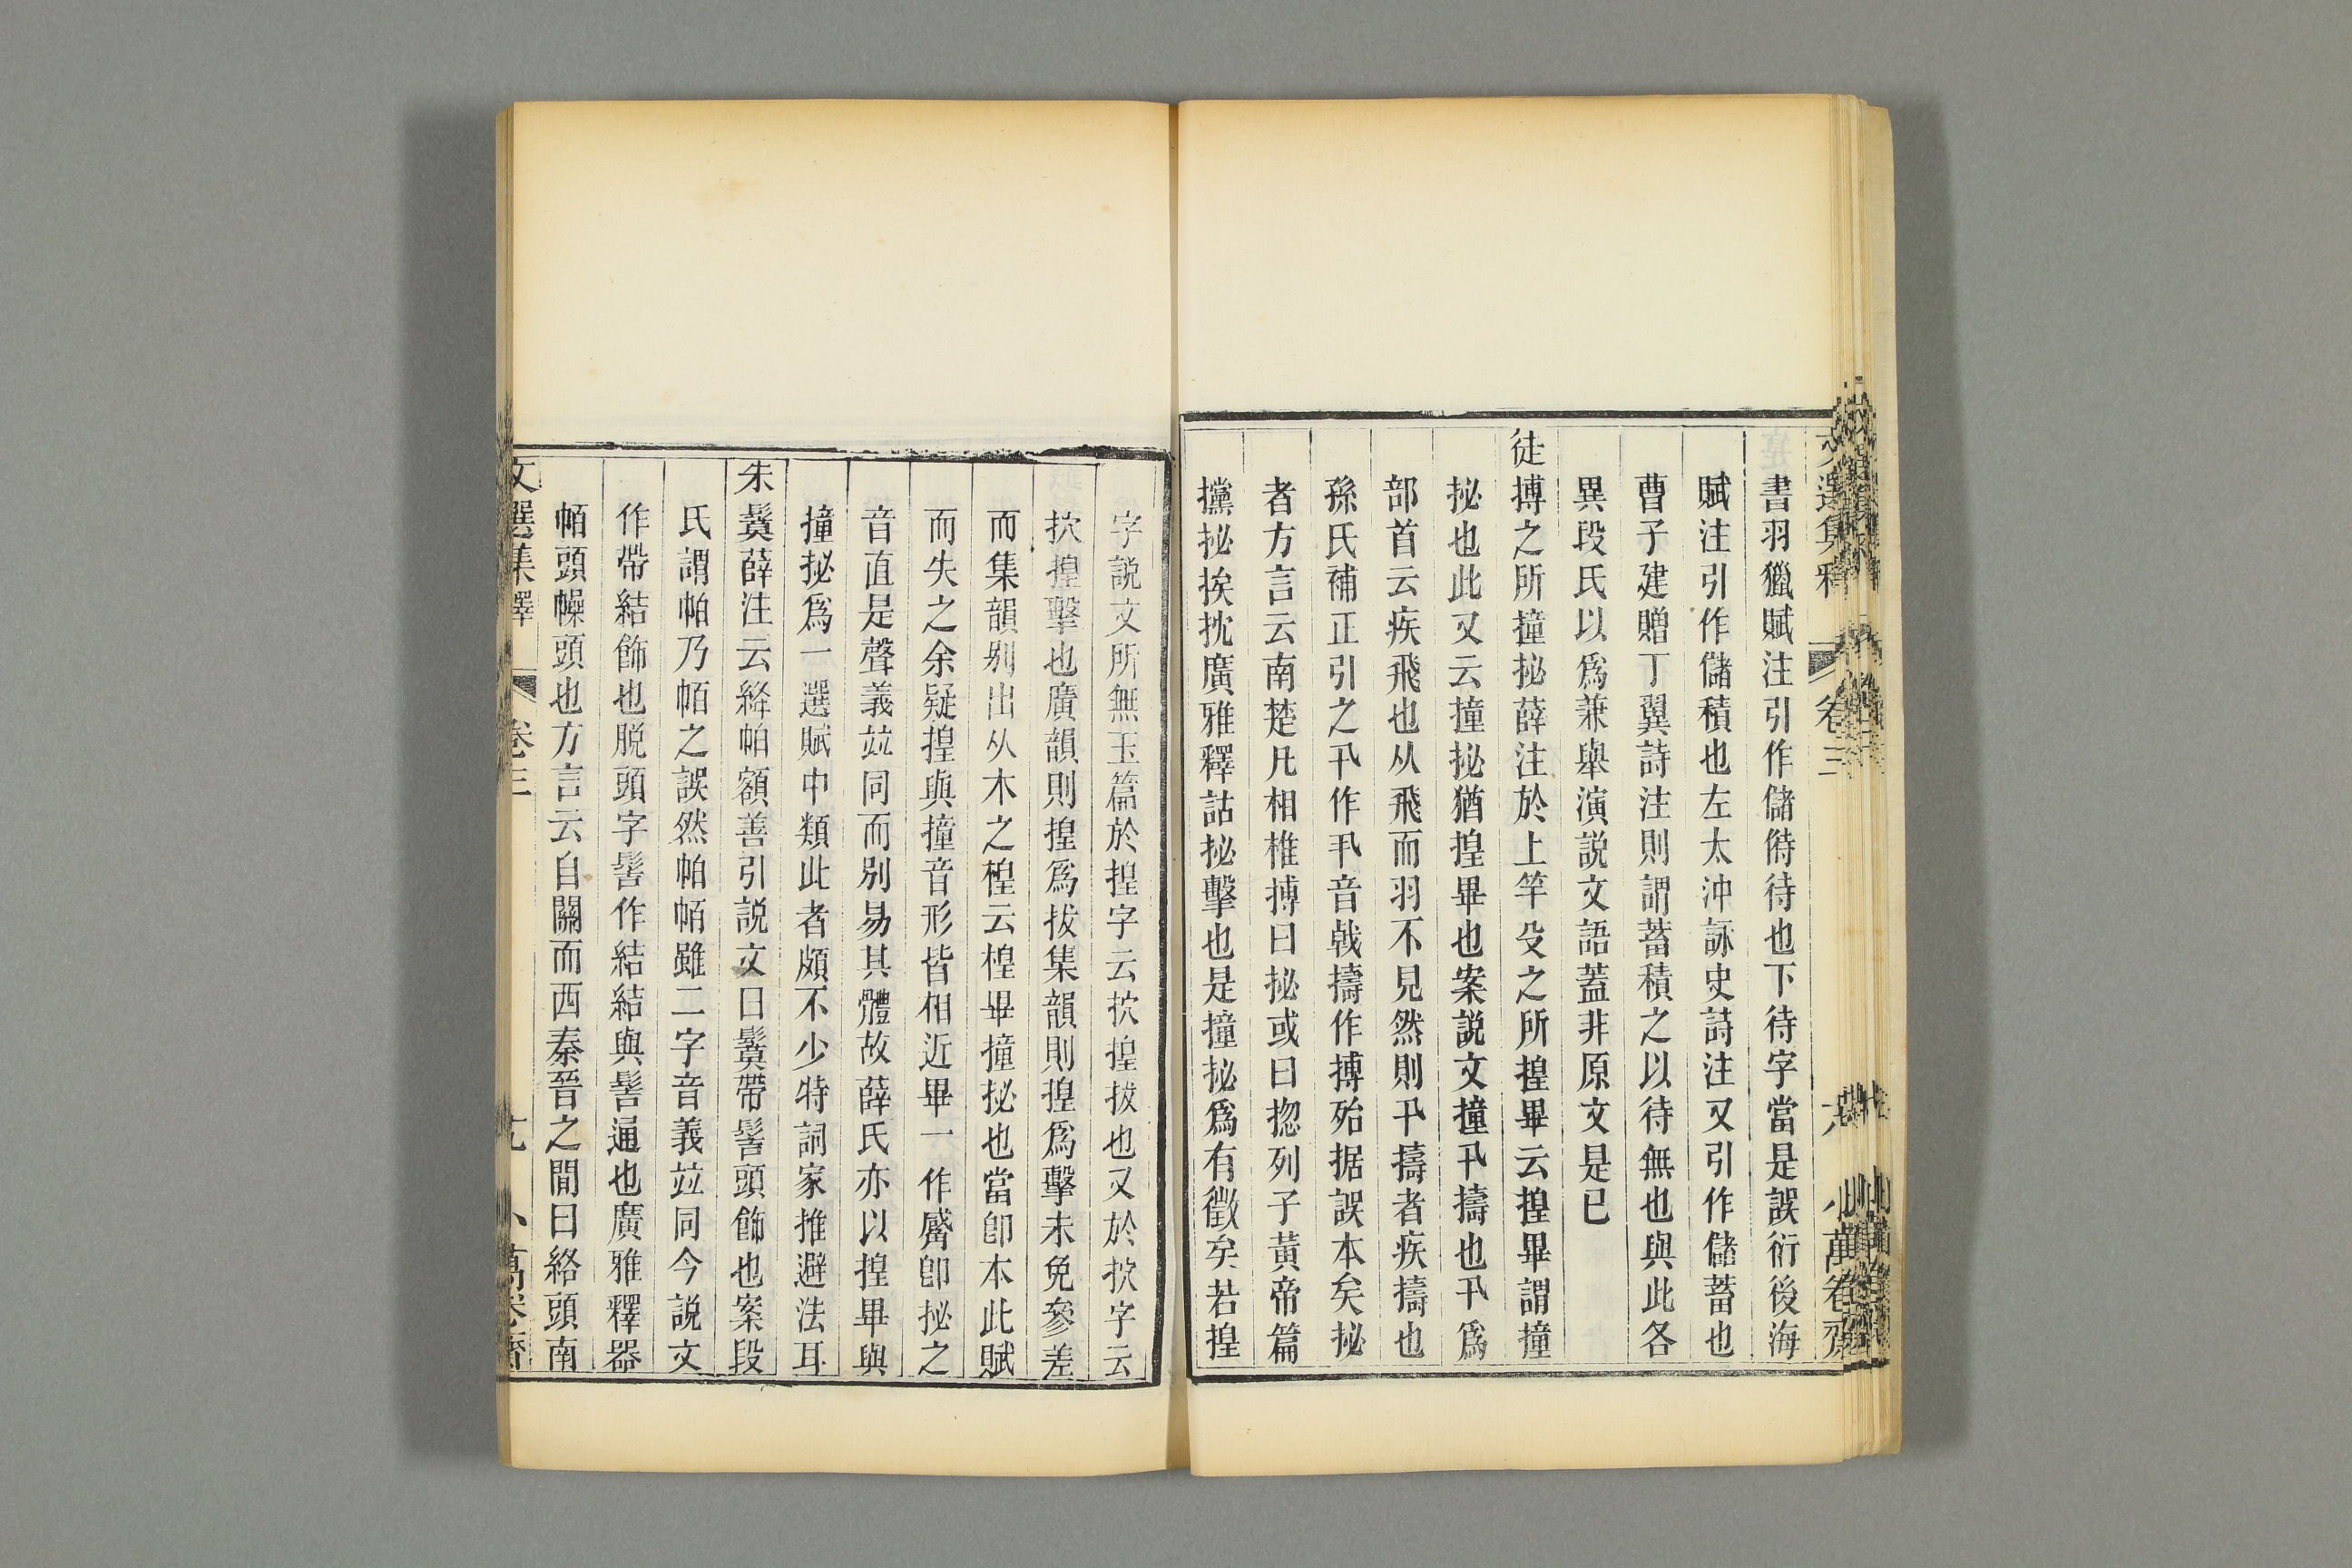 書羽獵賦注引作儲偫待也下待字當是誤衍後海
賦注引作儲積也左太沖詠史詩注又引作儲蓄也
曹子建贈丁翼詩注則謂蓄積之以待無也與此各
異段氏以爲兼舉演說文語蓋非原文是已
徒搏之所撞㧙薛注於上竿殳之所揘畢云揘畢謂撞
㧙也此又云撞㧙猶揘畢也案說文撞卂擣也卂爲
部首云疾飛也从飛而羽不見然則卂擣者疾擣也
孫氏補正引之卂作丮音戟擣作搏殆据誤本矣㧙
者方言云南楚凡相椎搏曰㧙或曰㧾列子黃帝篇
攩㧙挨抌廣雅釋詁㧙擊也是撞㧙爲有徵矣若揘
字說文所無玉篇於揘字云抌揘拔也又於抌字云
抌揘擊也廣韻則揘爲拔集韻則揘爲擊未免參差
而集韻别出从木之楻云楻畢撞㧙也當卽本此賦
而失之余疑揘與撞音形皆相近畢一作觱卽㧙之
音直是聲義竝同而别易其體故薛氏亦以揘畢與
撞㧙爲一選賦中類此者頗不少特詞家推避法耳
朱鬕薛注云絳帕額善引說文曰鬕帶髻頭飾也案段
氏謂帕乃帞之誤然帕帞雖二字音義竝同今說文
作帶結飾也脫頭字髻作結結與髻通也廣雅釋器
帞頭幧頭也方言云自關而西秦晉之閒曰絡頭南
文選集釋 卷三